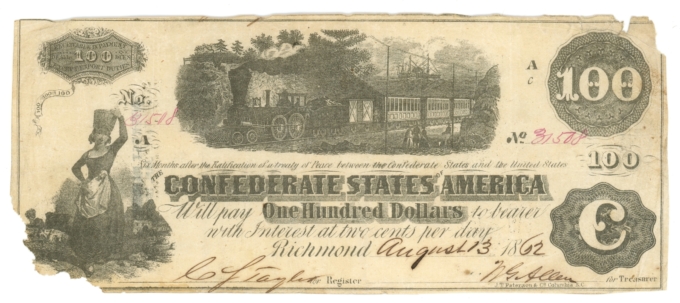 100
A
100
No.
31518
A
No 31518
Six Months after the Ratification of a treaty of Peace between the Confederate States and the United States
100
THE
CONFEDERATE STATES OF AMERICA
Will pay One Hundred Dollars to bearer
with Interest at two cents per day
Richmond August 13 1862
C
for Register
for Treasurer